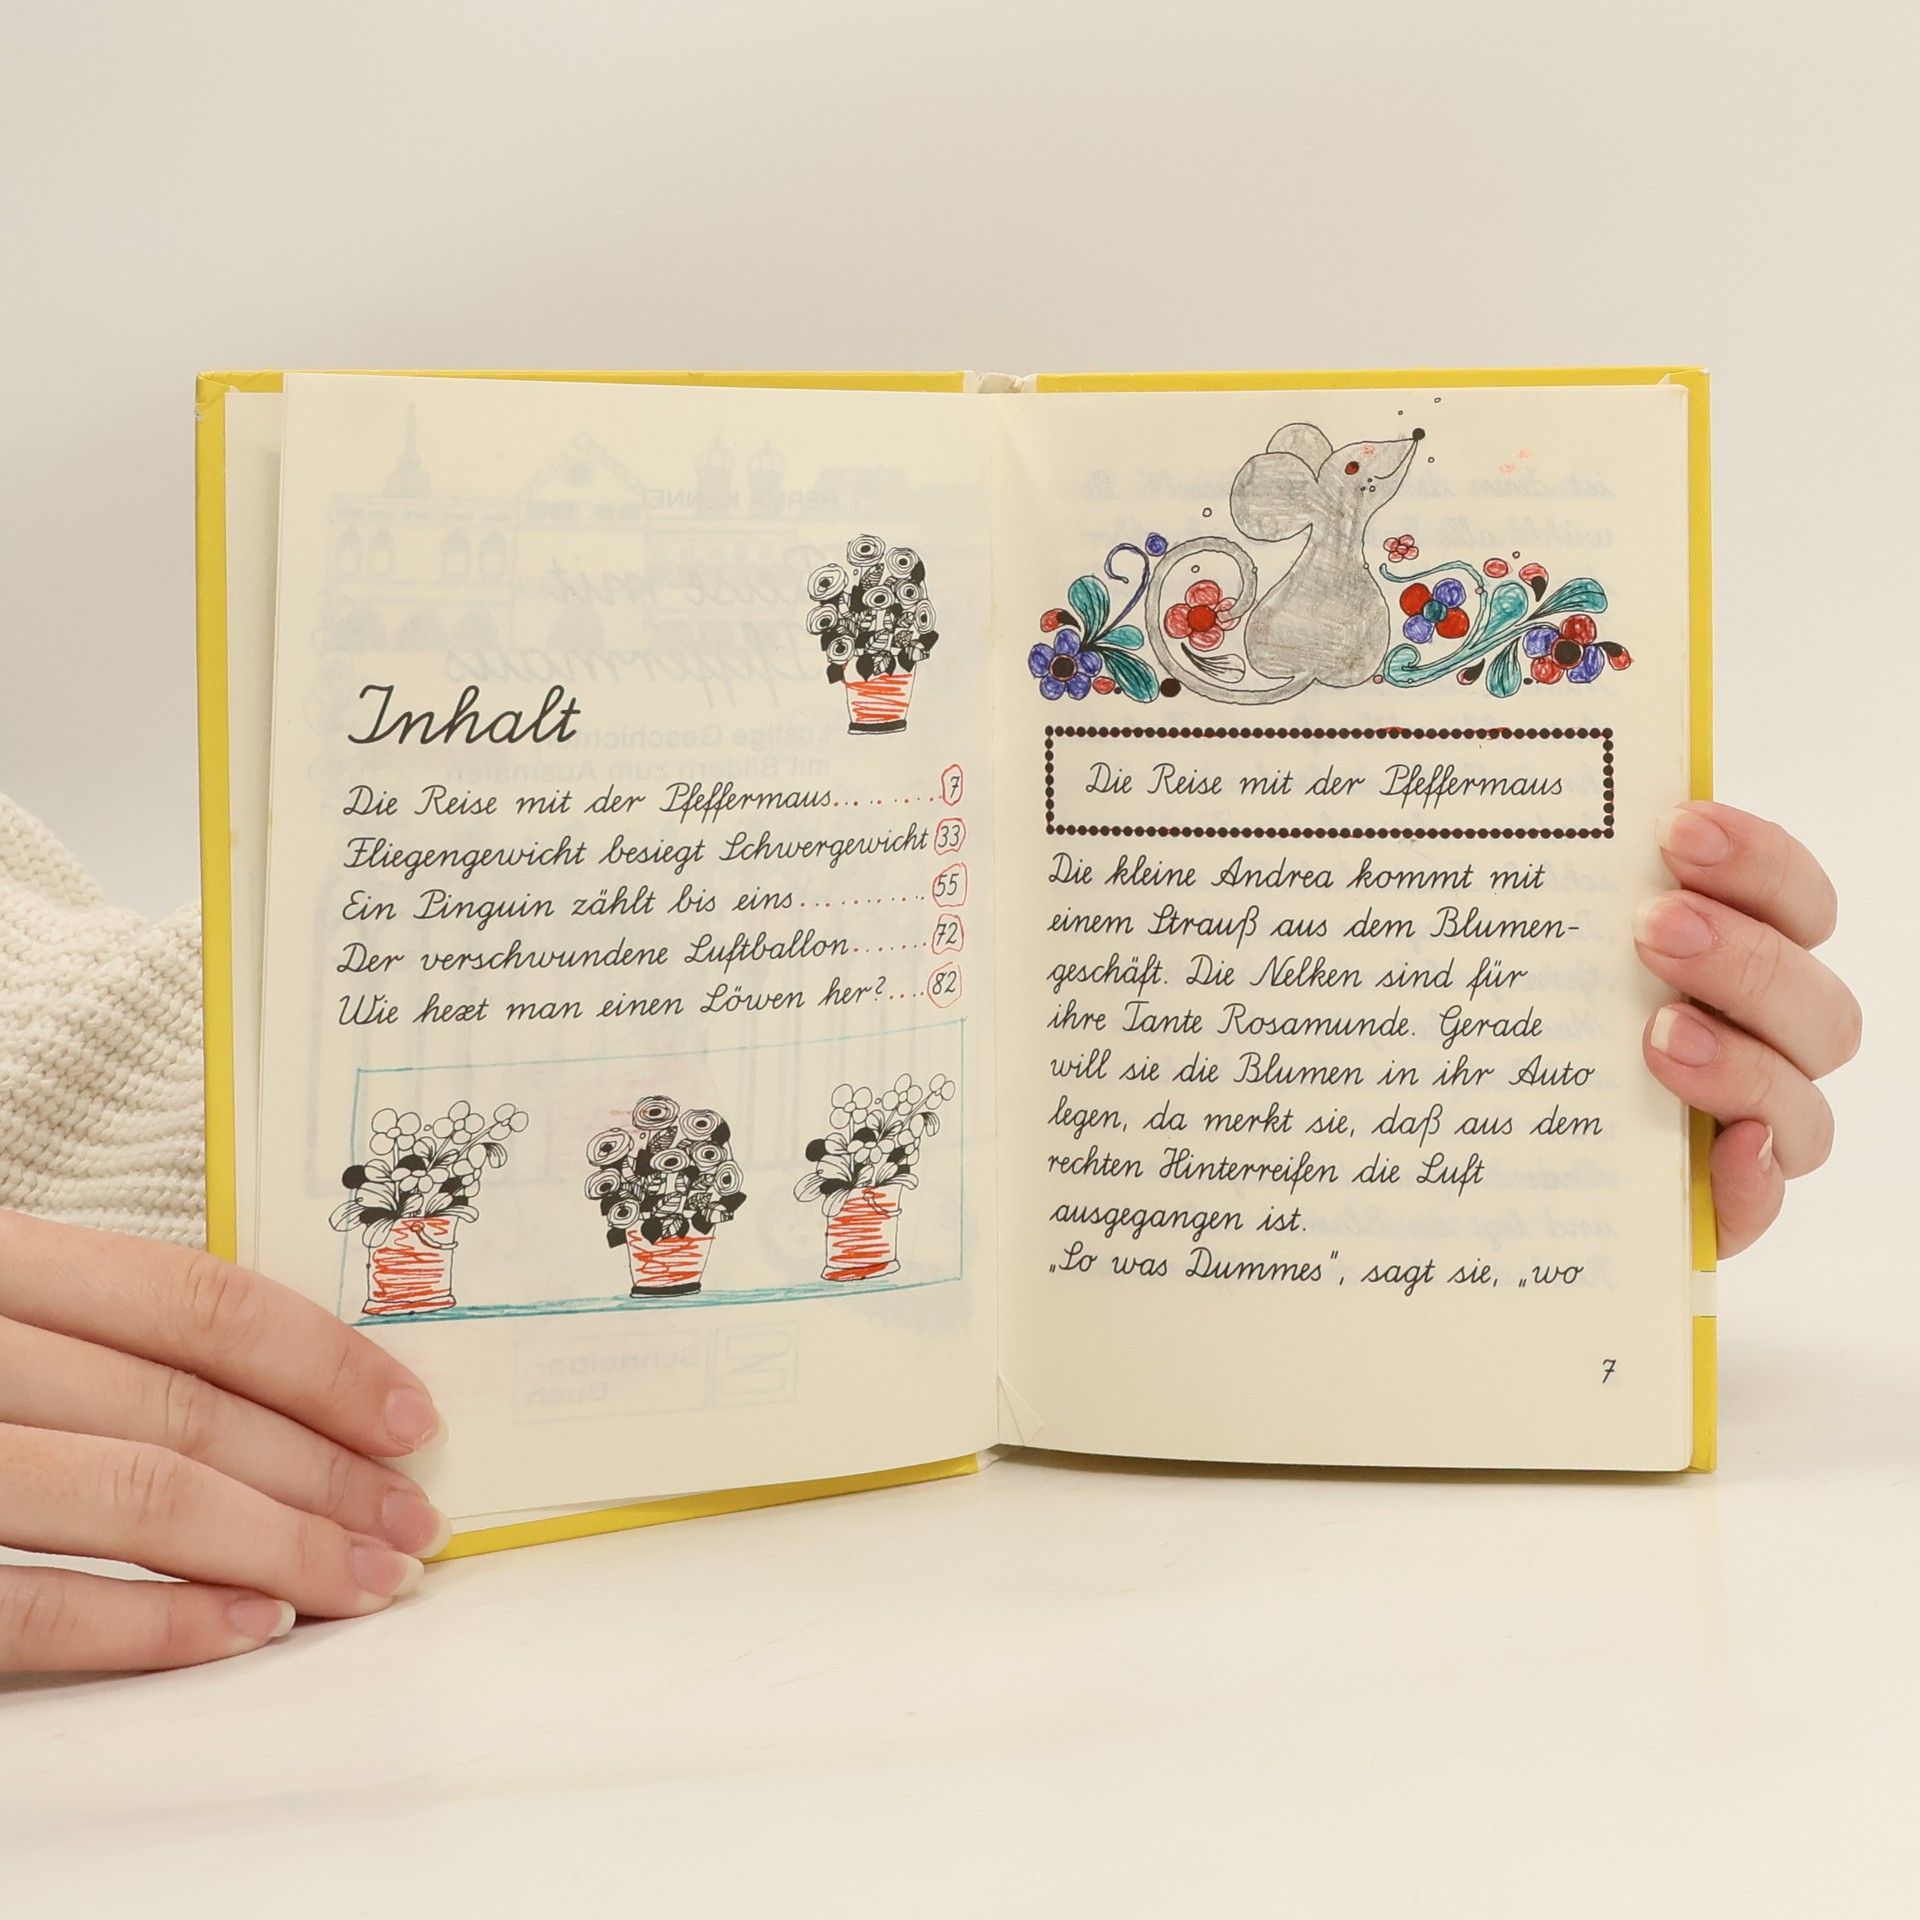 Inhalt
Die Reise mit der Pfeffermaus.........7
Fliegengewicht besiegt Schwergewicht 33
Ein Pinguin zählt bis eins..........55
Der verschwundene Luftballon.......72
Wie hext man einen Löwen her?....82
Die Reise mit der Pfeffermaus
Die kleine Andrea kommt mit
einem Strauß aus dem Blumen-
geschäft. Die Nelken sind für
ihre Tante Rosamunde. Gerade
will sie die Blumen in ihr Auto
legen, da merkt sie, daß aus dem
rechten Hinterreifen die Luft
ausgegangen ist.
„So was Dummes", sagt sie, „wo
7